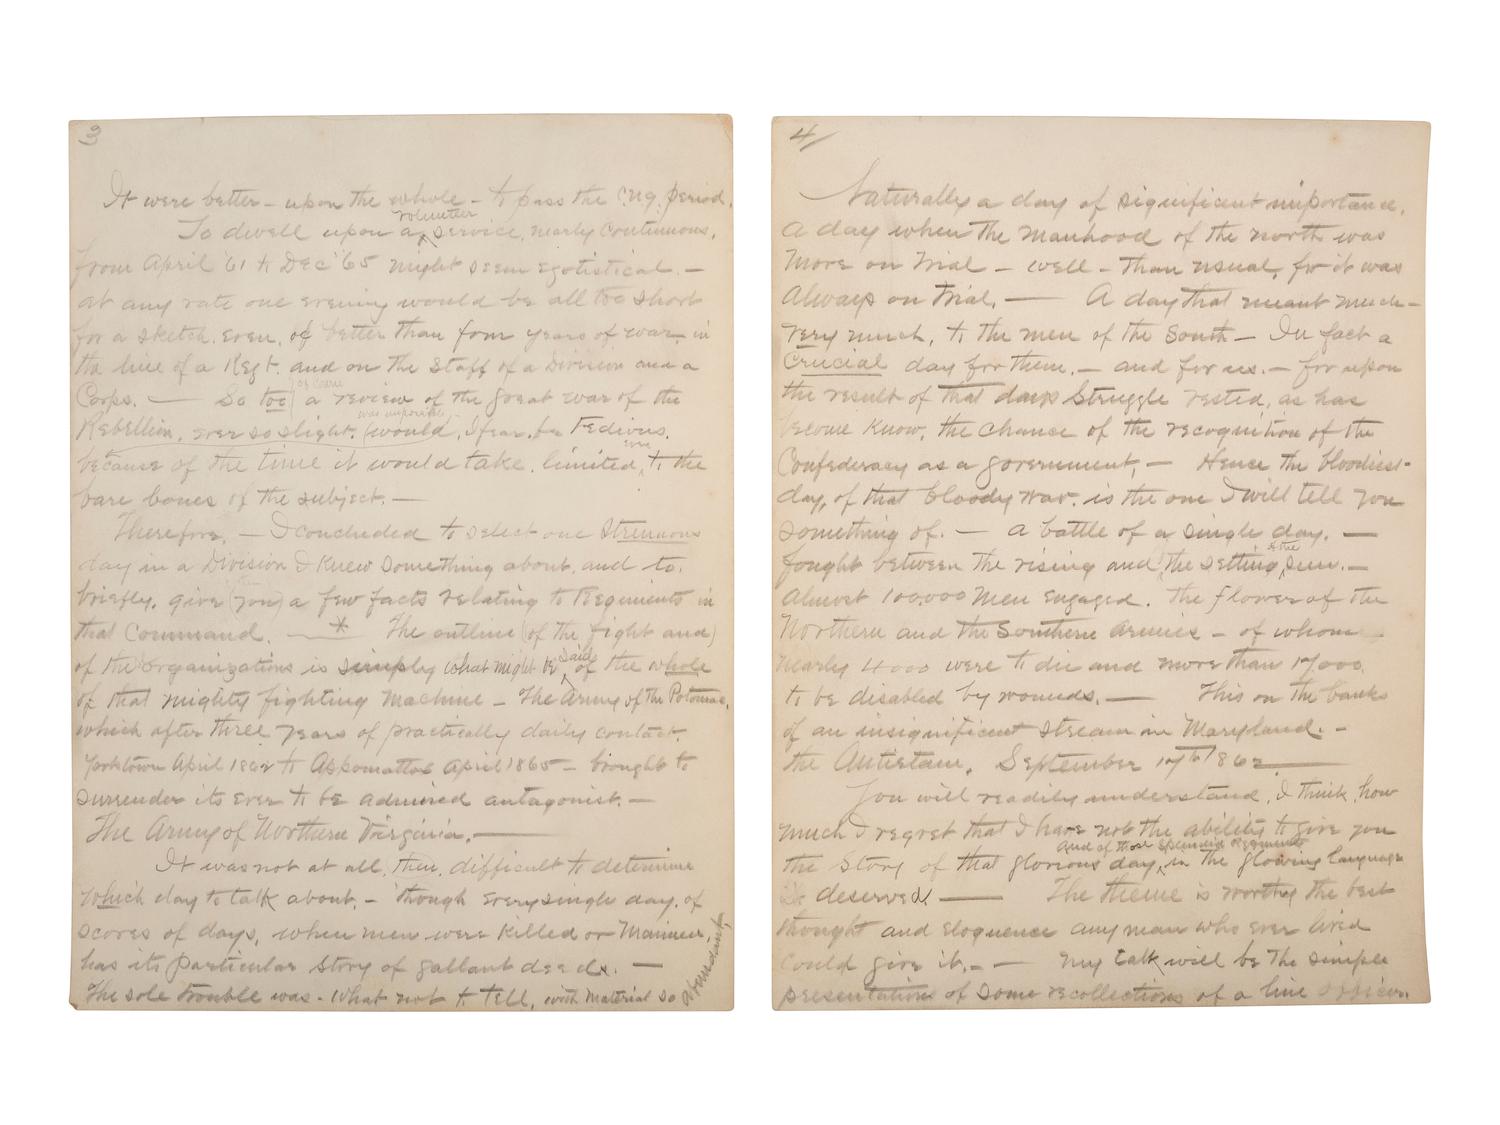 3
It were better – upon the whole – to pass the C.N.G. period.
volunteer
To dwell upon a service, nearly continuous,
from April '61 to Dec '65 might seem egotistical. –
at any rate one evening would be all too short
for a sketch, even, of better than four years of war – in
the line of a Regt. and on the Staff of a Division and a
Corps. — So too a review of the great war of the
was impossible
Rebellion, ever so slight, (would, I fear, be tedious,
even
because of the time it would take, limited, to the
bare bones of the subject. —
Therefore, – I concluded to select one strenuous
day in a Division I knew something about, and to,
briefly, give (you) a few facts relating to Regiments in
that Command. —*— The outline (of the fight and)
said
of the organizations is simply what might be of the whole
of that mighty fighting machine – The Army of the Potomac,
which after three years of practically daily contact,
Yorktown April 1862 to Appomattox April 1865 – brought to
surrender its ever to be admired antagonist. —
The Army of Northern Virginia. —
It was not at all, then, difficult to determine
which day to talk about. – though every single day, of
scores of days, when men were killed or maimed,
has its particular story of gallant deeds. —
The sole trouble was – what not to tell, with material so abundant,
4/
Naturally a day of significant importance,
A day when the manhood of the north was
more on trial – well – than usual, for it was
always on trial. — A day that meant much –
very much, to the men of the South – In fact a
Crucial day for them. – and for us. – for upon
the result of that days struggle rested, as has
become know, the chance of the recognition of the
Confederacy as a government, – Hence the bloodiest
day, of that bloody war, is the one I will tell you
something of. — a battle of a single day. —
of the
fought between the rising and the setting sun. –
Almost 100,000 men engaged. The flower of the
Northern and the Southern armies – of whom
nearly 4000 were to die and more than 17000
to be disabled by wounds. — This on the banks
of an insignificant stream in Maryland. –
the Antietam, September 17th 1862 —
You will readily understand, I think, how
much I regret that I have not the ability to give you
and of those splendid Regiments
the story of that glorious day, in the glowing language
deserved. — The theme is worthy the best
thought and eloquence any man who ever lived
could give it. – – My talk will be the simple
presentations of some recollections of a line officer.